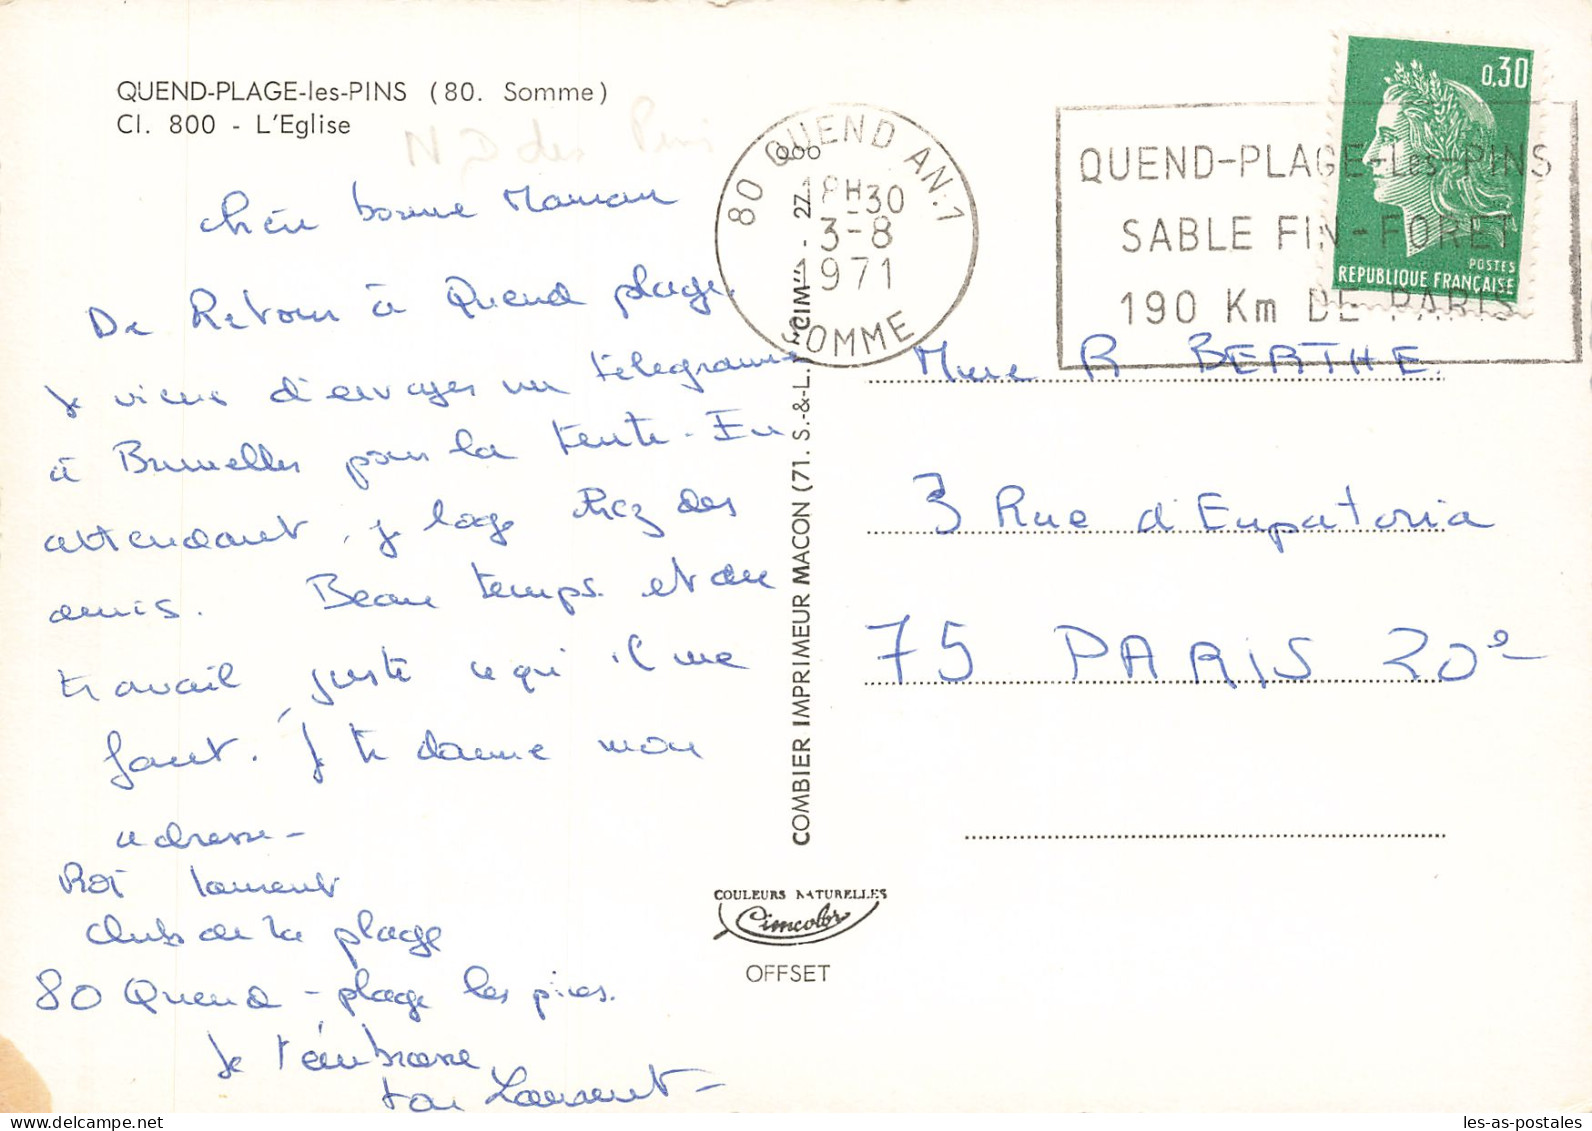 QUEND-PLAGE-les-PINS (80. Somme)
Cl. 800 - L'Eglise
N D des Pins
Chère bonne Maman
De Retour à Quend plage,
Je viens d'envoyer un télégramme
à Bruxelles pour la tente. En
attendant, je loge chez des
amis. Beau temps. et du
travail, juste ce qui il me
faut. Je te donne mon
adresse -
Roi Laurent
Club de la plage
80 Quend - plage les pins.
Je t'embrasse
ton Laurent -
80 QUEND AN.1
18H30
3-8
1971
SOMME
QUEND-PLAGE-Les-PINS
SABLE FIN - FORET
190 Km DE PARIS
0,30
POSTES
REPUBLIQUE FRANÇAISE
COMBIER IMPRIMEUR MACON (71. S.-&-L.) "CIM"
Mme R BERTHE
3 Rue d'Eupatoria
75 PARIS 20e
COULEURS NATURELLES
Cimcolor
OFFSET
delcampe.net
les-as-postales